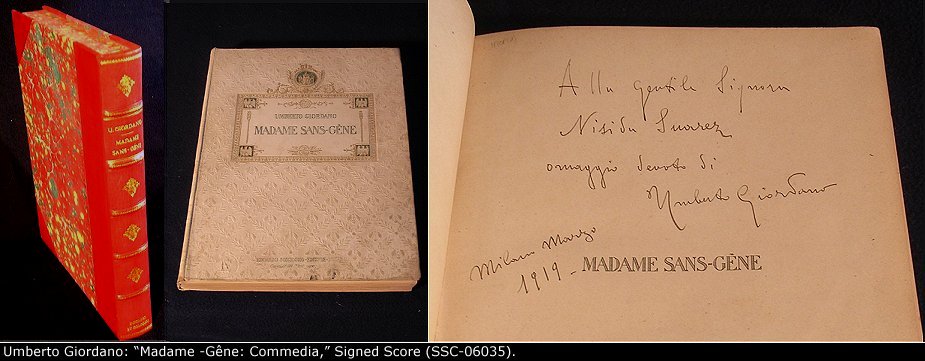 U. GIORDANO
MADAME
SANS-GÊNE
UMBERTO GIORDANO
MADAME SANS-GÊNE
EDOARDO SONZOGNO - EDITORE
Alla gentile Signora
Nisida Suarez
omaggio devoto di
Umberto Giordano
Milano Marzo
1919 -
MADAME SANS-GÊNE
Umberto Giordano: “Madame -Gêne: Commedia,” Signed Score (SSC-06035).